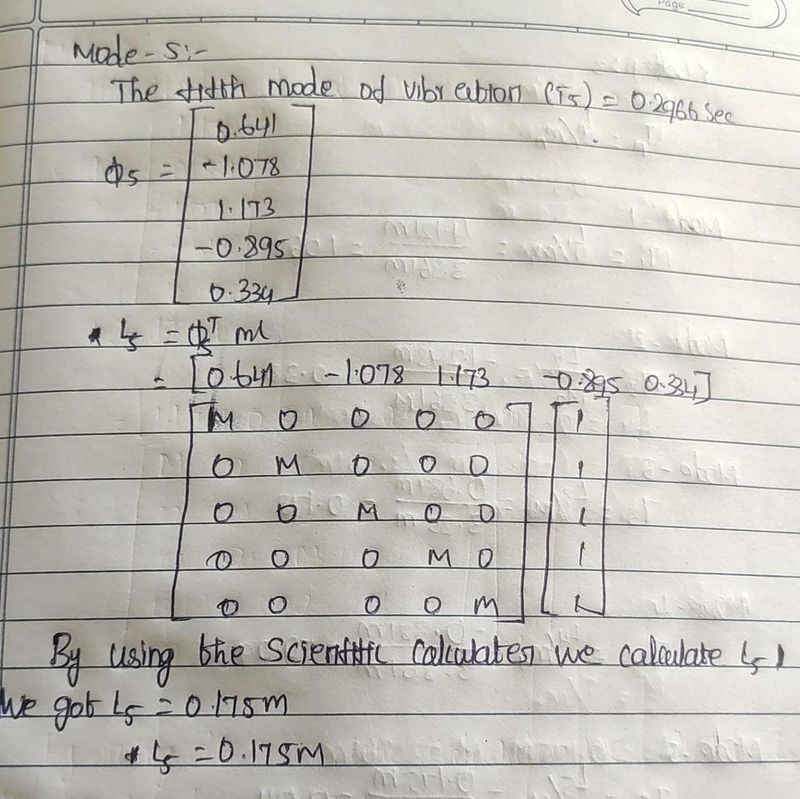 Page
Mode-5:-
The fifth mode of vibration (T5) = 0.2966 sec
ϕ5 = [0.641
-1.078
1.173
-0.895
0.334]
* L5 = ϕ5^T ml
= [0.641 -1.078 1.173 -0.895 0.334]
[M 0 0 0 0] [1
0 M 0 0 0 1
0 0 M 0 0 1
0 0 0 M 0 1
0 0 0 0 M] 1]
By using the Scientific calculates, we calculate L5,
We got L5 = 0.175M
* L5 = 0.175M